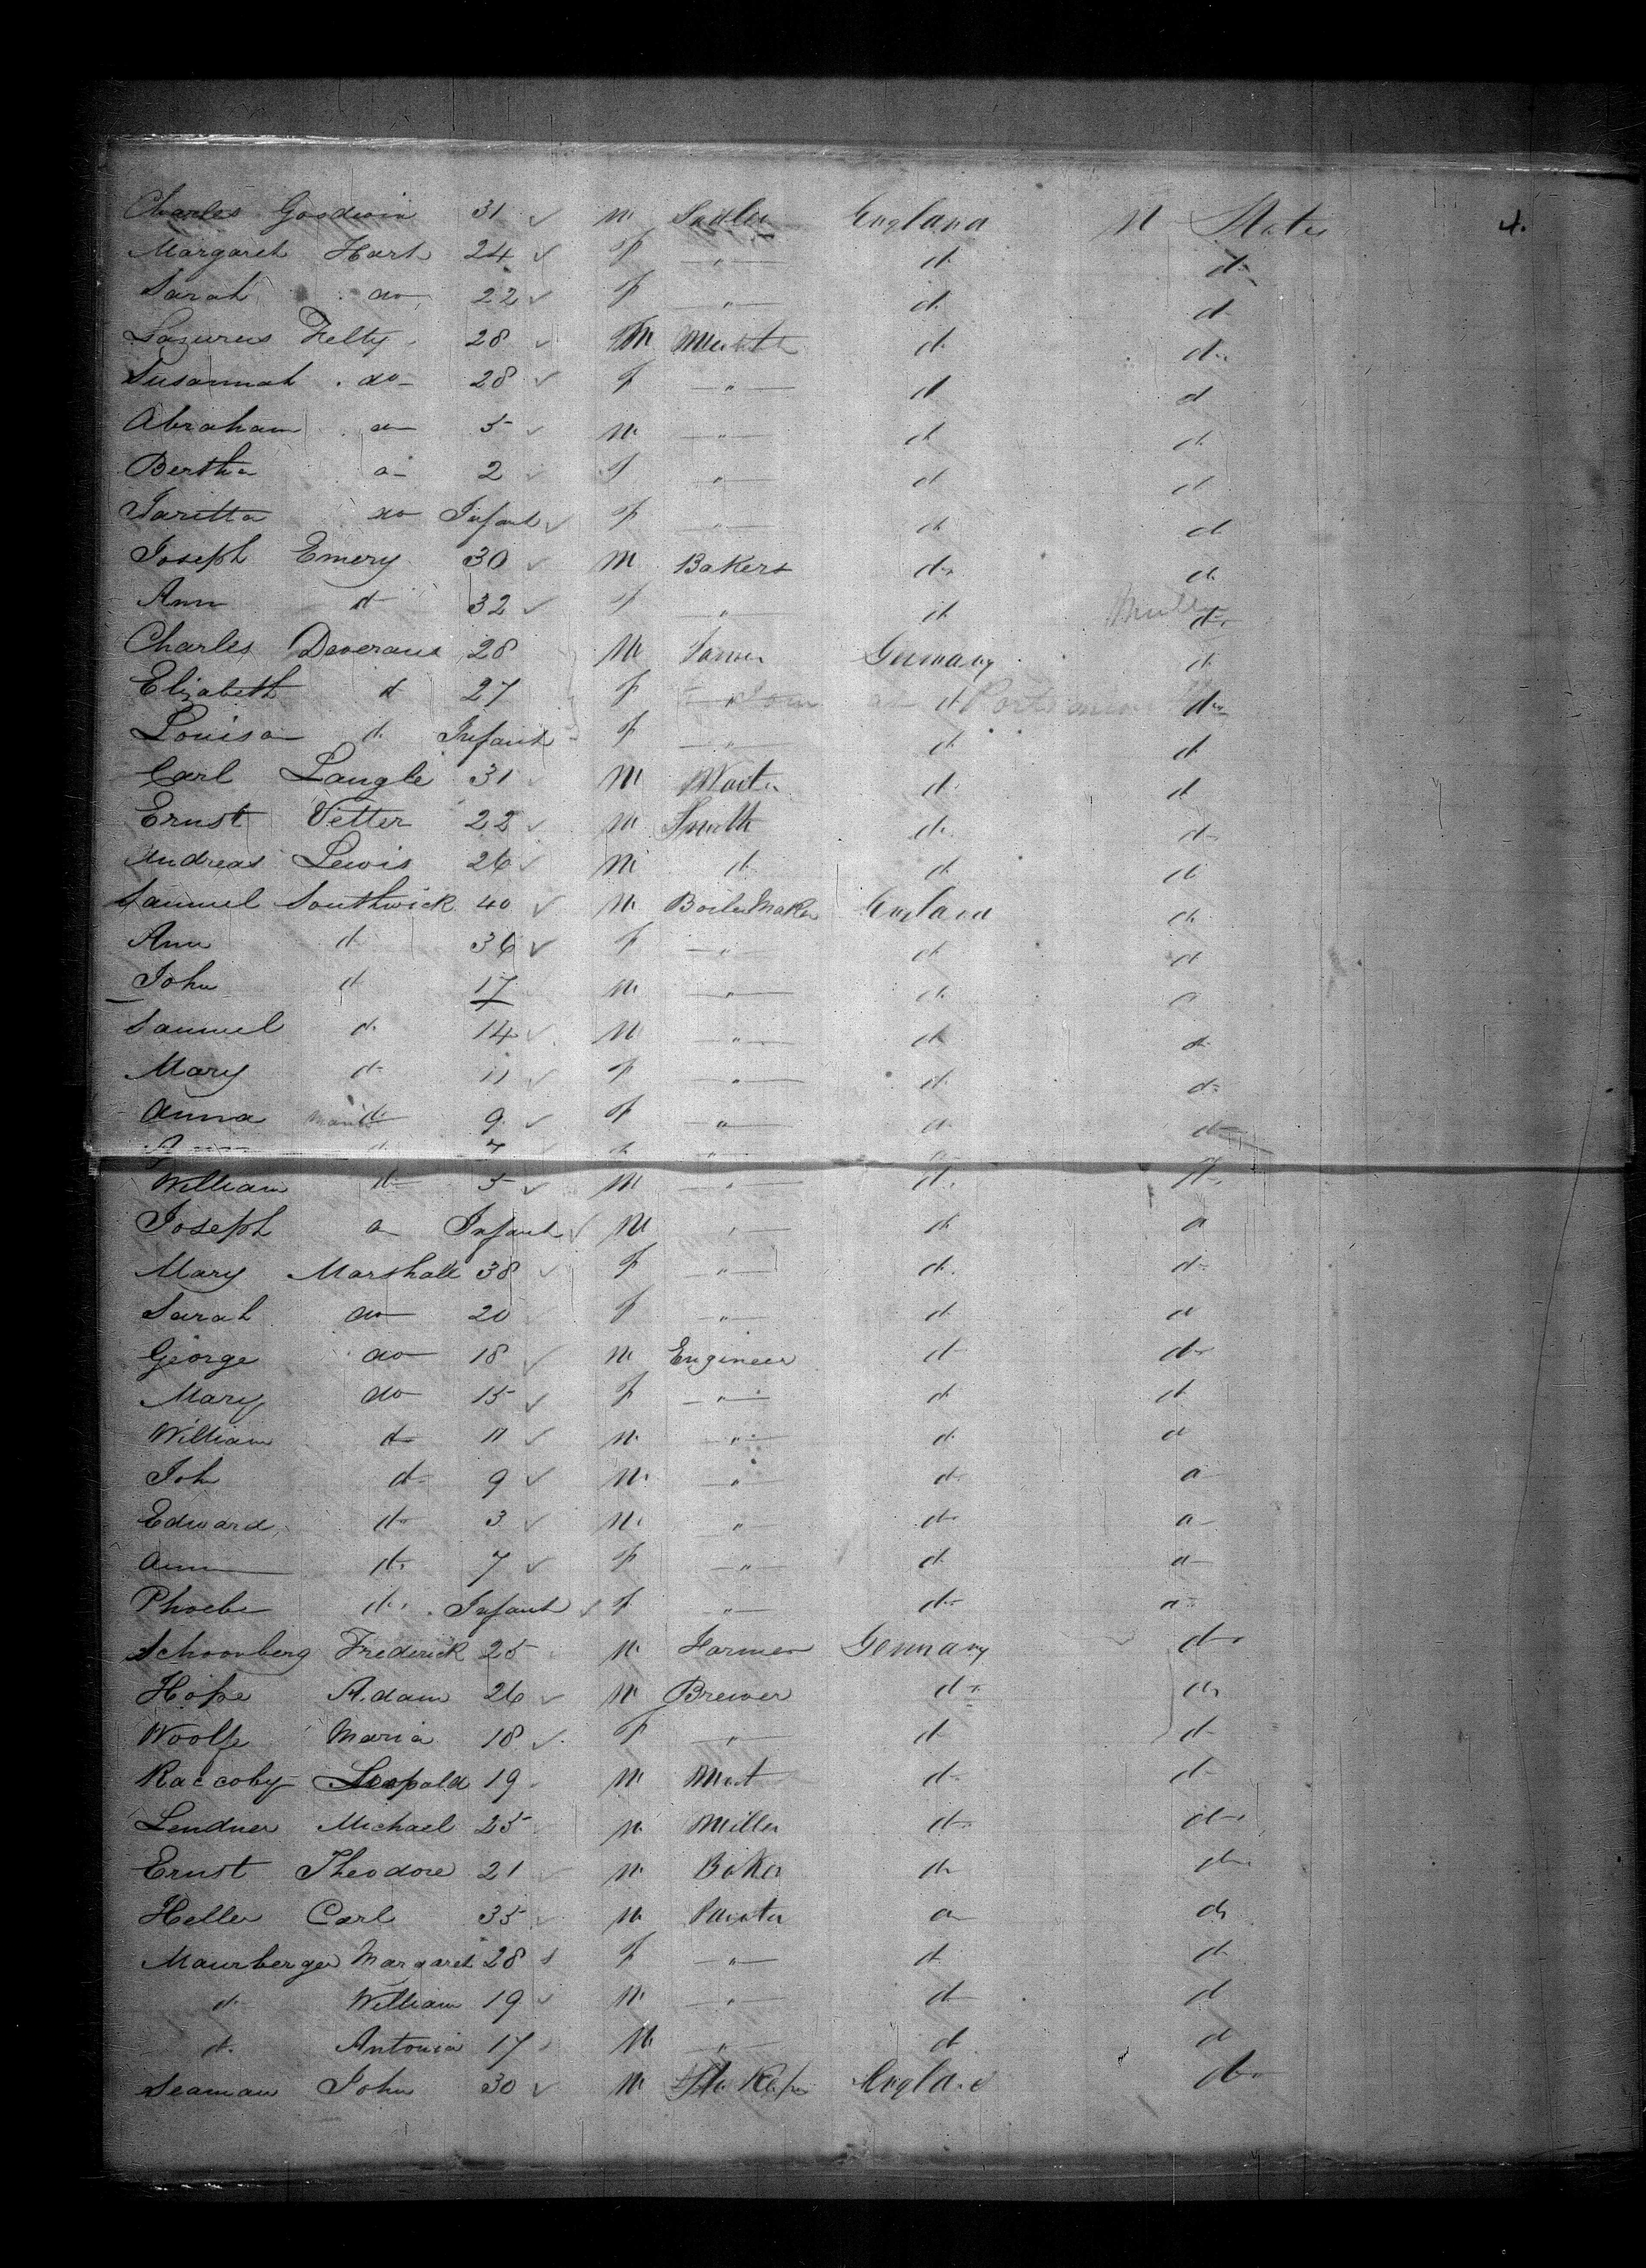 Charles Goodwin 31 ✓ M Sadler England U States 4.
Margaret Hart 24 ✓ f — " — do do
Sarah do 22 ✓ f — " — do do
Lazurus Felty 28 ✓ M do do
Susannah do 28 ✓ f — " — do do
Abraham do 5 ✓ M — " — do do
Bertha do 2 ✓ f " do do
do Infant ✓ f — " — do do
Joseph Emery 30 ✓ M Bakers do do
Ann do 32 ✓ f — " — do do
Charles Daveraux 28 M Germany do
Elizabeth do 27 f — " — do do
Louisa do Infant f — " — do do
Carl Langle 31 M do do
Ernst Vetter 22 ✓ M Smith do do
Andreas Lewis 26 ✓ M do do do
Samuel Southwick 40 ✓ M Boiler Maker England do
Ann do 36 ✓ f — " — do do
John do 17 M — " — do do
Samuel do 14 ✓ M — " — do do
Mary do 11 ✓ f — " — do do
Anna do 9 ✓ f — " — do do
do 7 " do
William do 5 ✓ M — " — do do
Joseph do Infant ✓ M — " — do do
Mary Marshall 38 ✓ f — " — do do
Sarah do 20 f — " — do do
George do 18 ✓ M Engineer do do
Mary do 15 ✓ f — " — do do
William do 11 ✓ M — " — do do
Joh do 9 ✓ M " do do
Edward do 3 ✓ M " do do
Ann do 7 ✓ f — " — do do
Phoebe do Infant ✓ f " do do
Schoonberg Frederick 25 M Farmer Germany do
Hope Adam 26 ✓ M Brewer do do
Woolfe Maria 18 ✓ f — " — do do
Raccoby Leopold 19 M do do
Lendner Michael 25 M Miller do do
Ernst Theodore 21 M Baker do do
Heller Carl 35 M Painter do do
Maurberger Margaret 28 f — " — do do
do William 19 ✓ M — " — do do
do Antonia 17 M — " — do do
Seaman John 30 ✓ M England do